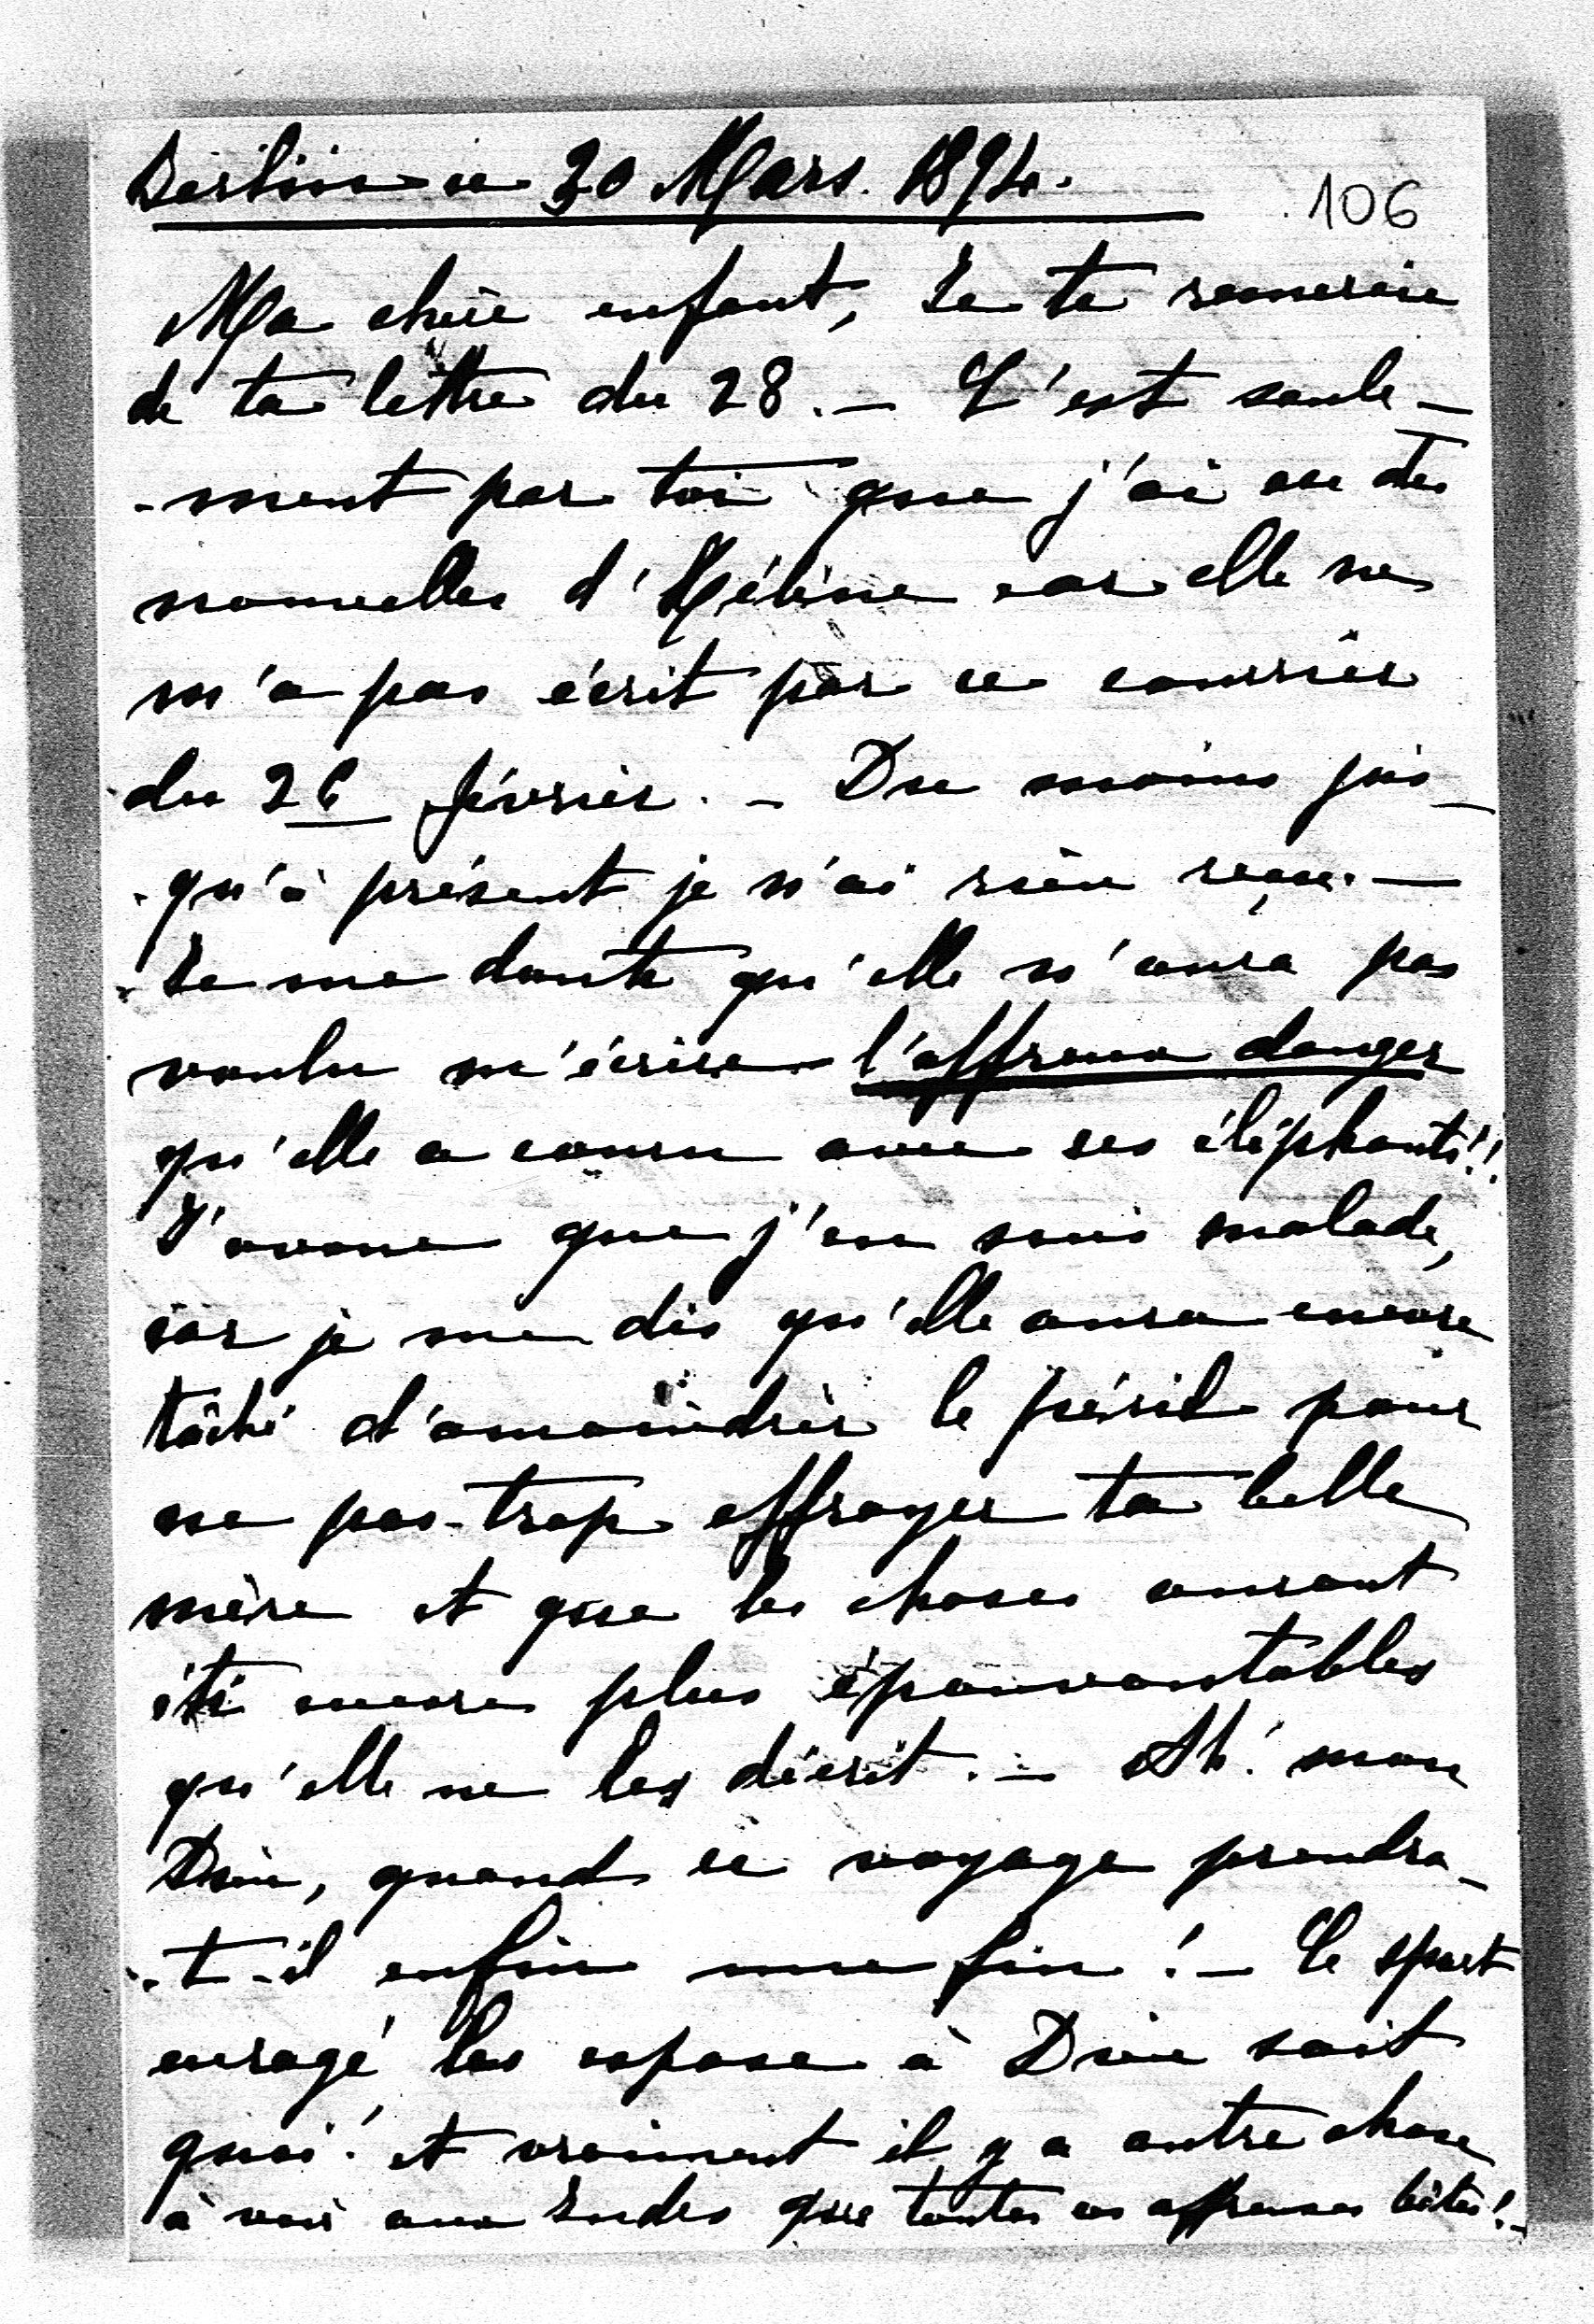 Berlin ce 30 Mars. 1894.
106
Ma chère enfant, Je te remercie
de ta lettre du 28. — C'est seule-
-ment par toi que j'ai eu des
nouvelles d'Hélène car elle ne
m'a pas écrit par ce courrier
du 26 février. — Du moins jus-
-qu'à présent je n'ai rien reçu. —
Je me doute qu'elle n'aura pas
voulu m'écrire l'affreux danger
qu'elle a couru avec ses éléphants!!
J'avoue que j'en suis malade,
car je me dis qu'elle aura encore
tâché d'amoindrir le péril pour
ne pas trop effrayer ta belle
mère et que les choses auront
été encore plus épouvantables
qu'elle ne les décrit. — Ah! mon
Dieu, quand ce voyage prendra-
-t-il enfin une fin! — Ce sport
enragé les expose à Dieu sait
quoi! et vraiment il y a autre chose
à voir aux Indes que toutes ces affreuses bêtes! —